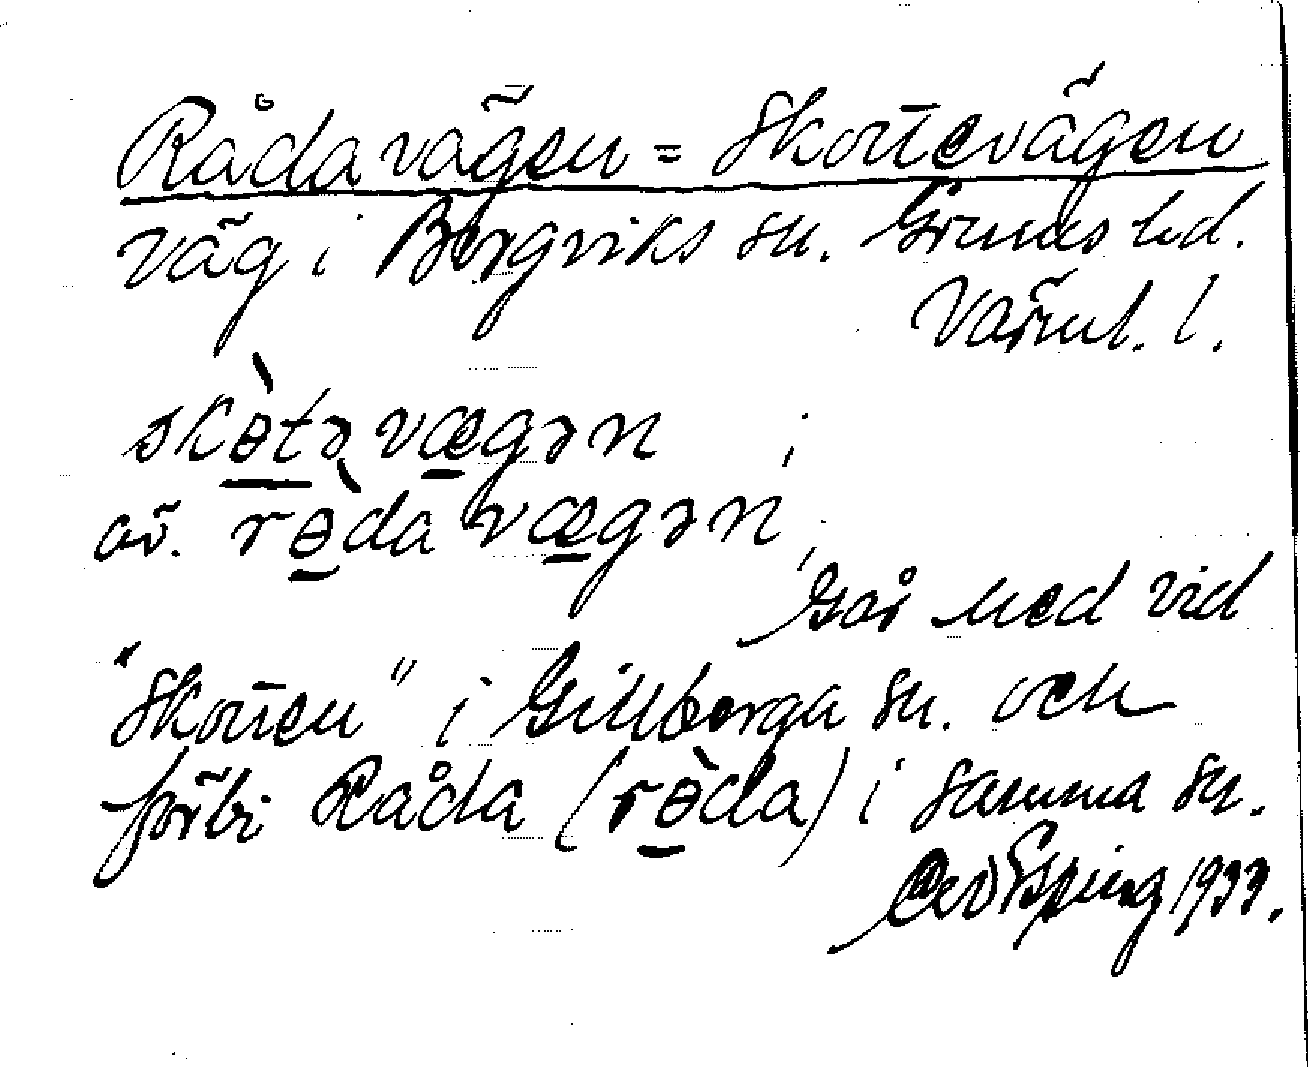 Rådavägen = Skottevägen
väg i Borgviks sn. Grums hd.
Värml. l.
skɵ̀tə vægən ;
av. rɵ̀da vægən,
Går ned vid
"Skotten" i Gillberga sn. och
förbi Råda (rɵ̀da) i samma sn.
1933.